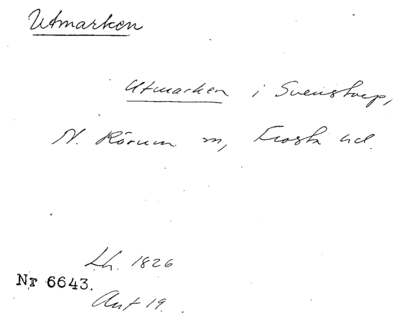 Utmarken
Utmarken i Svenstorp,
N. Rörum sn, Frosta hd.
Lh. 1826
Nr 6643.
Akt 19.